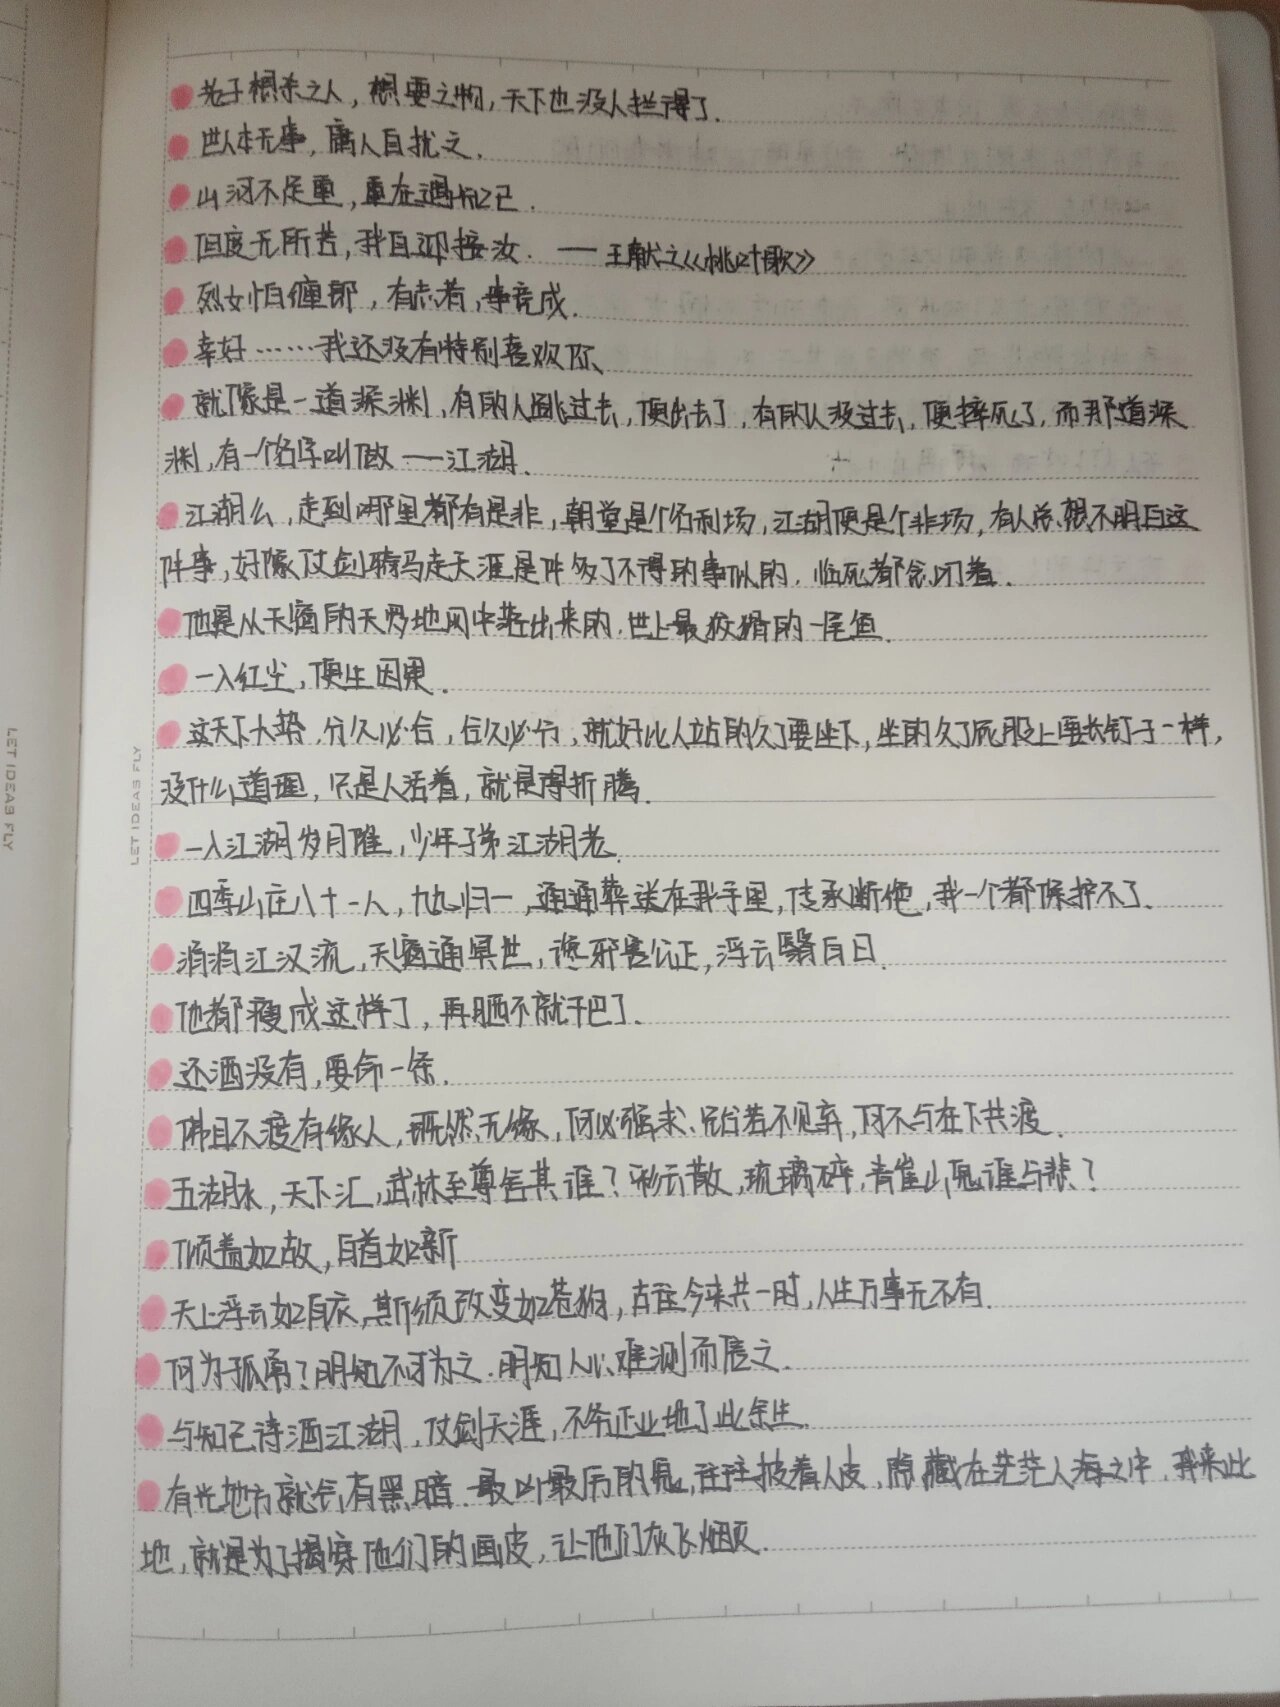 老子想杀之人，想要之物，天下也没人拦得了．
世人本无事，庸人自扰之．
山河不足重，重在遇知己．
但度无所苦，我自迎接汝．——王献之《桃叶歌》
烈女怕缠郎，有志者，事竟成．
幸好……我还没有特别喜欢你、
就像是一道深渊，有的人跳过去，便出去了，有的人没过去，便摔死了，而那道深
渊，有一个名字叫做——江湖．
江湖么，走到哪里都有是非，朝堂是个名利场，江湖便是个非场，有人总想不明白这
件事，好像仗剑骑马走天涯是件多了不得的事似的．临死都念叨着．
他是从天窗的天罗地网中莽出来的．世上最狡猾的一尾鱼．
一入红尘，便生因果．
这天下大势，分久必合，合久必分，就好比人站的久了要坐下，坐的久了屁股上要长钉子一样，
没什么道理，只是人活着，就是得折腾．
一入江湖岁月催，少年子弟江湖老．
四季山庄八十一人，九九归一，通通葬送在我手里，传承断绝，我一个都保护不了．
涓涓江汉流，天窗通冥世，谗邪害公正，浮云翳白日．
他都瘦成这样了，再晒不就干巴了．
还酒没有，要命一条．
佛曰不渡有缘人，既然无缘，何必强求、兄台若不见弃，何不与在下共渡．
五湖水，天下汇，武林至尊舍其谁？彩云散，琉璃碎，青崖山鬼谁与悲？
倾盖如故，白首如新
天上浮云如白衣，斯须改变如苍狗，古往今来共一时，人生万事无不有．
何为孤勇？明知不可为之．明知人心难测而信之．
与知己诗酒江湖，仗剑天涯，不务正业地了此余生．
有光地方就会有黑暗．最凶最厉的鬼，往往披着人皮，隐藏在茫茫人海之中．我来此
地，就是为了揭穿他们的画皮，让他们灰飞烟灭．
LET IDEAS FLY
LET IDEAS FLY